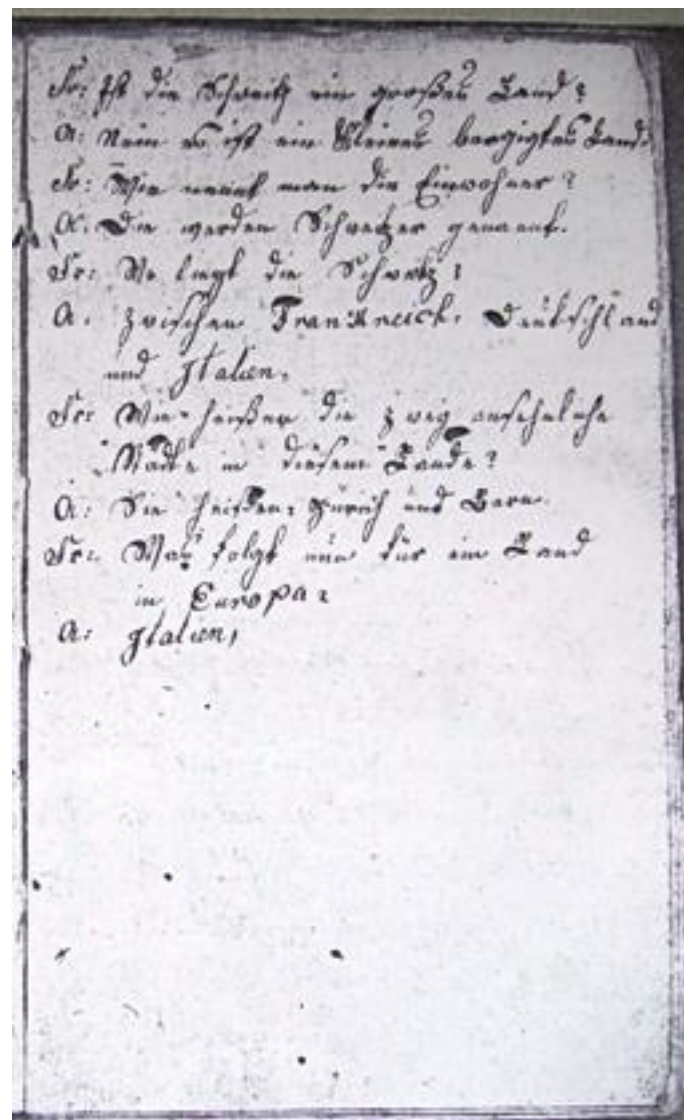 Fr: Ist die Schweitz ein großes Land?
A: Nein es ist ein kleines bergigtes Land.
Fr: Wie nennt man die Einwohner?
A: Die werden Schweitzer genannt.
Fr: Wo liegt die Schweitz?
A. Zwischen Frankreich, Deutschland
und Italien.
Fr: Wie heißen die zwey ansehnliche
Städte in diesem Lande?
A: Sie heissen: Zürich und Bern.
Fr: Was folgt nun für ein Land
in Europa?
A: Italien,